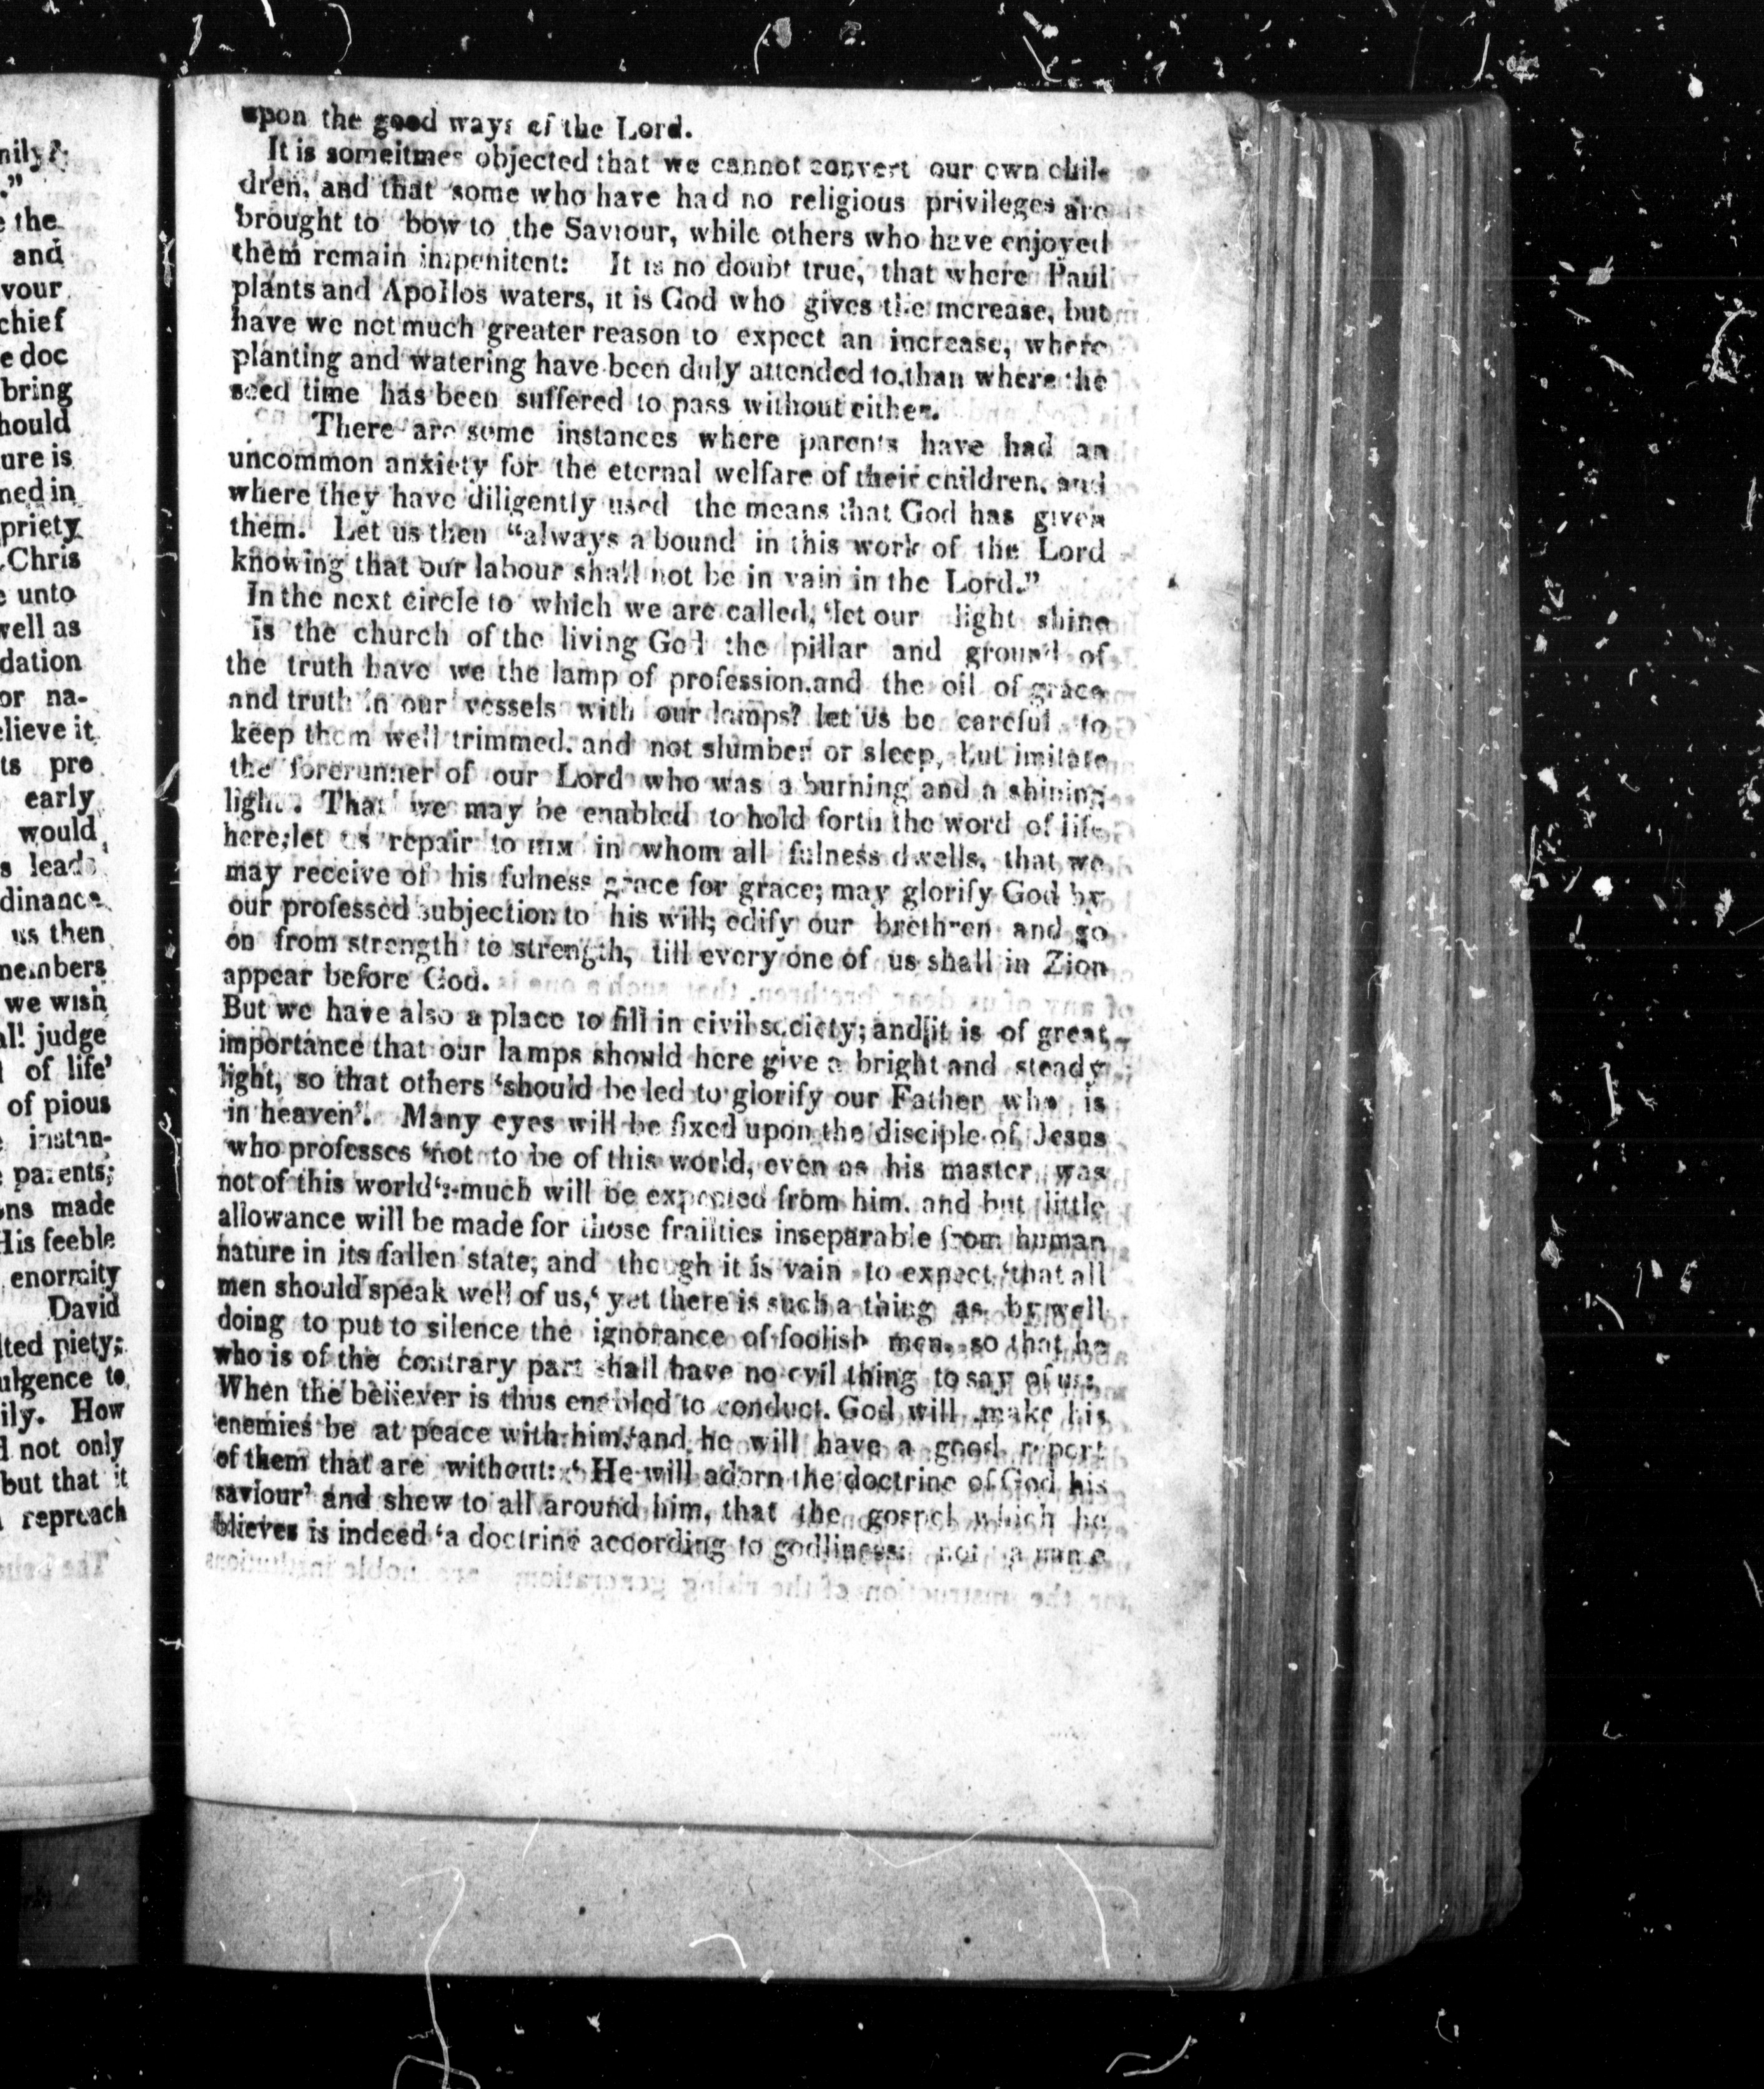 mily?
."
e the
and
vour
chief
e doc
bring
hould
ure is
ned in
priety
Chris
e unto
well as
dation
or na-
elieve it
ts pre
early
would
s leads
dinance
us then
members
we wish
all judge
of life'
of pious
e instan-
e parents;
ons made
His feeble
enormity
David
lted piety;
ulgence to
ily. How
d not only
but that it
reproach
upon the good ways of the Lord.
It is someitmes objected that we cannot convert our own chil-
dren, and that some who have had no religious privileges are
brought to bow to the Saviour, while others who have enjoyed
them remain impenitent: It is no doubt true, that where Paul
plants and Apollos waters, it is God who gives the increase, but
have we not much greater reason to expect an increase, where
planting and watering have been duly attended to, than where the
seed time has been suffered to pass without either.
There are some instances where parents have had an
uncommon anxiety for the eternal welfare of their children, and
where they have diligently used the means that God has given
them. Let us then "always abound in this work of the Lord
knowing that our labour shall not be in vain in the Lord."
In the next circle to which we are called, 'let our light shine
is the church of the living God the pillar and ground of
the truth have we the lamp of profession, and the oil of grace
and truth in our vessels with our lamps? let us be careful to
keep them well trimmed, and not slumber or sleep, but imitate
the forerunner of our Lord who was a burning and a shining
light. That we may be enabled to hold forth the word of life
here; let us repair to HIM in whom all fulness dwells, that we
may receive of his fulness grace for grace; may glorify God by
our professed subjection to his will; edify our brethren and go
on from strength to strength, till every one of us shall in Zion
appear before God.
But we have also a place to fill in civil society; and it is of great
importance that our lamps should here give a bright and steady
light, so that others 'should be led to glorify our Father who is
in heaven'. Many eyes will be fixed upon the disciple of Jesus
who professes 'not to be of this world, even as his master was
not of this world':-much will be expected from him, and but little
allowance will be made for those frailties inseparable from human
nature in its fallen state; and though it is vain to expect, 'that all
men should speak well of us,' yet there is such a thing as by well
doing to put to silence the ignorance of foolish men, so that he
who is of the contrary part shall have no evil thing to say of us:
When the believer is thus enabled to conduct, God will make his
enemies be at peace with him, 'and he will have a good report
of them that are without: 'He will adorn the doctrine of God his
saviour' and shew to all around him, that the gospel which he
blieves is indeed 'a doctrine according to godliness: not a name